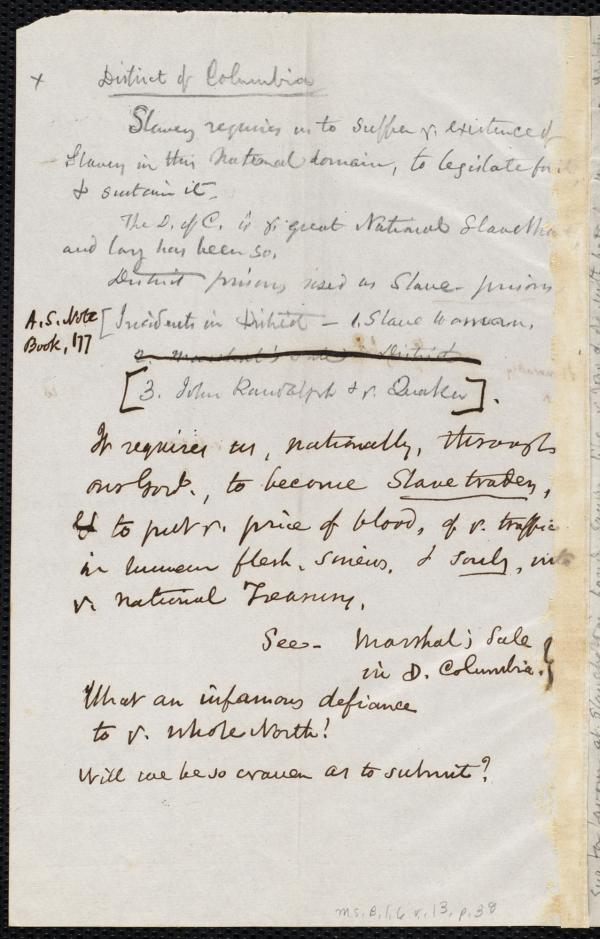 x District of Columbia
Slavery requires us to suffer yͤ existence of
Slavery in this National domain, to legislate for it,
& sustain it.
The D. of C. is yͤ great National Slave
and long has been so.
District prisons used as Slave-prisons
A.S. Note
Book, 177
[Incidents in District – 1. Slave Woman.
2. Marshal's Sale in District
[3. John Randolph & yͤ Quaker].
It requires us, nationally, through
our Govt., to become Slave traders,
& to put yͤ price of blood, of yͤ traffic
in human flesh, sinews, & souls, into
yͤ national Treasury.
See – Marshal's Sale
in D. Columbia.}
What an infamous defiance
to yͤ whole North!
Will we be so craven as to submit?
Ms. B.1.6 v.13, p.38